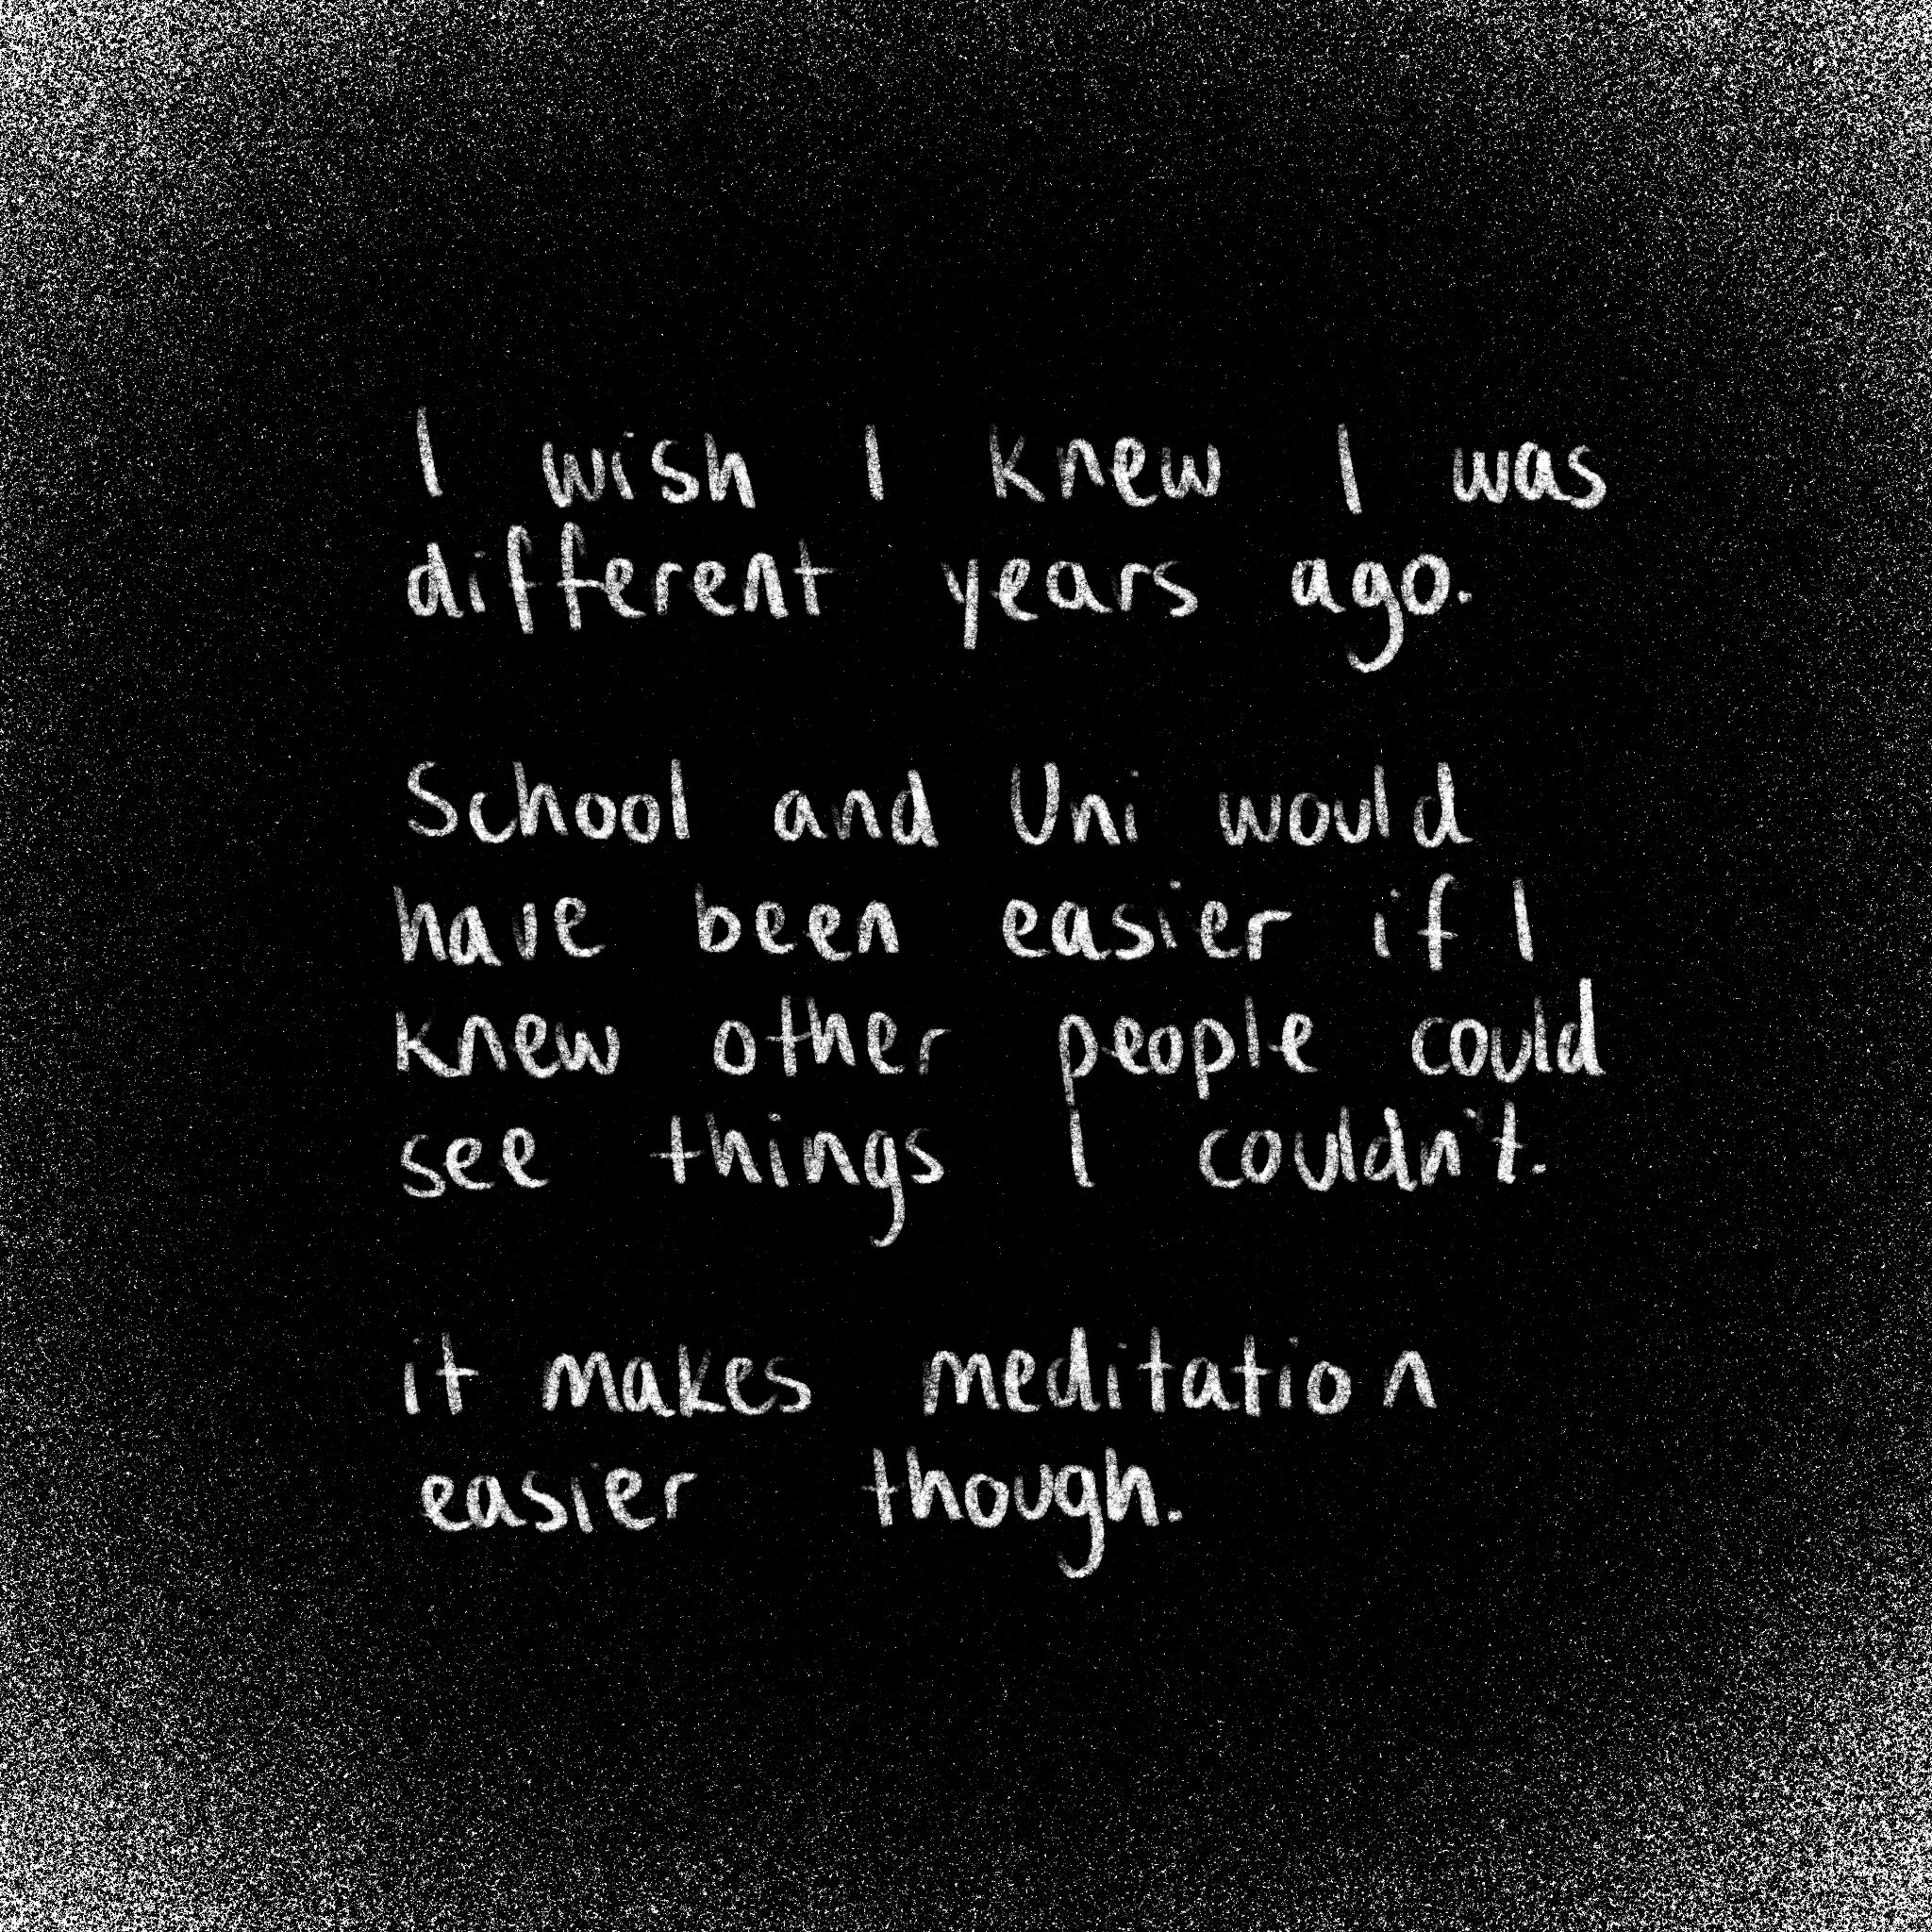 I wish I knew I was
different years ago.
School and Uni would
have been easier if I
knew other people could
see things I couldn't.
it makes meditation
easier though.